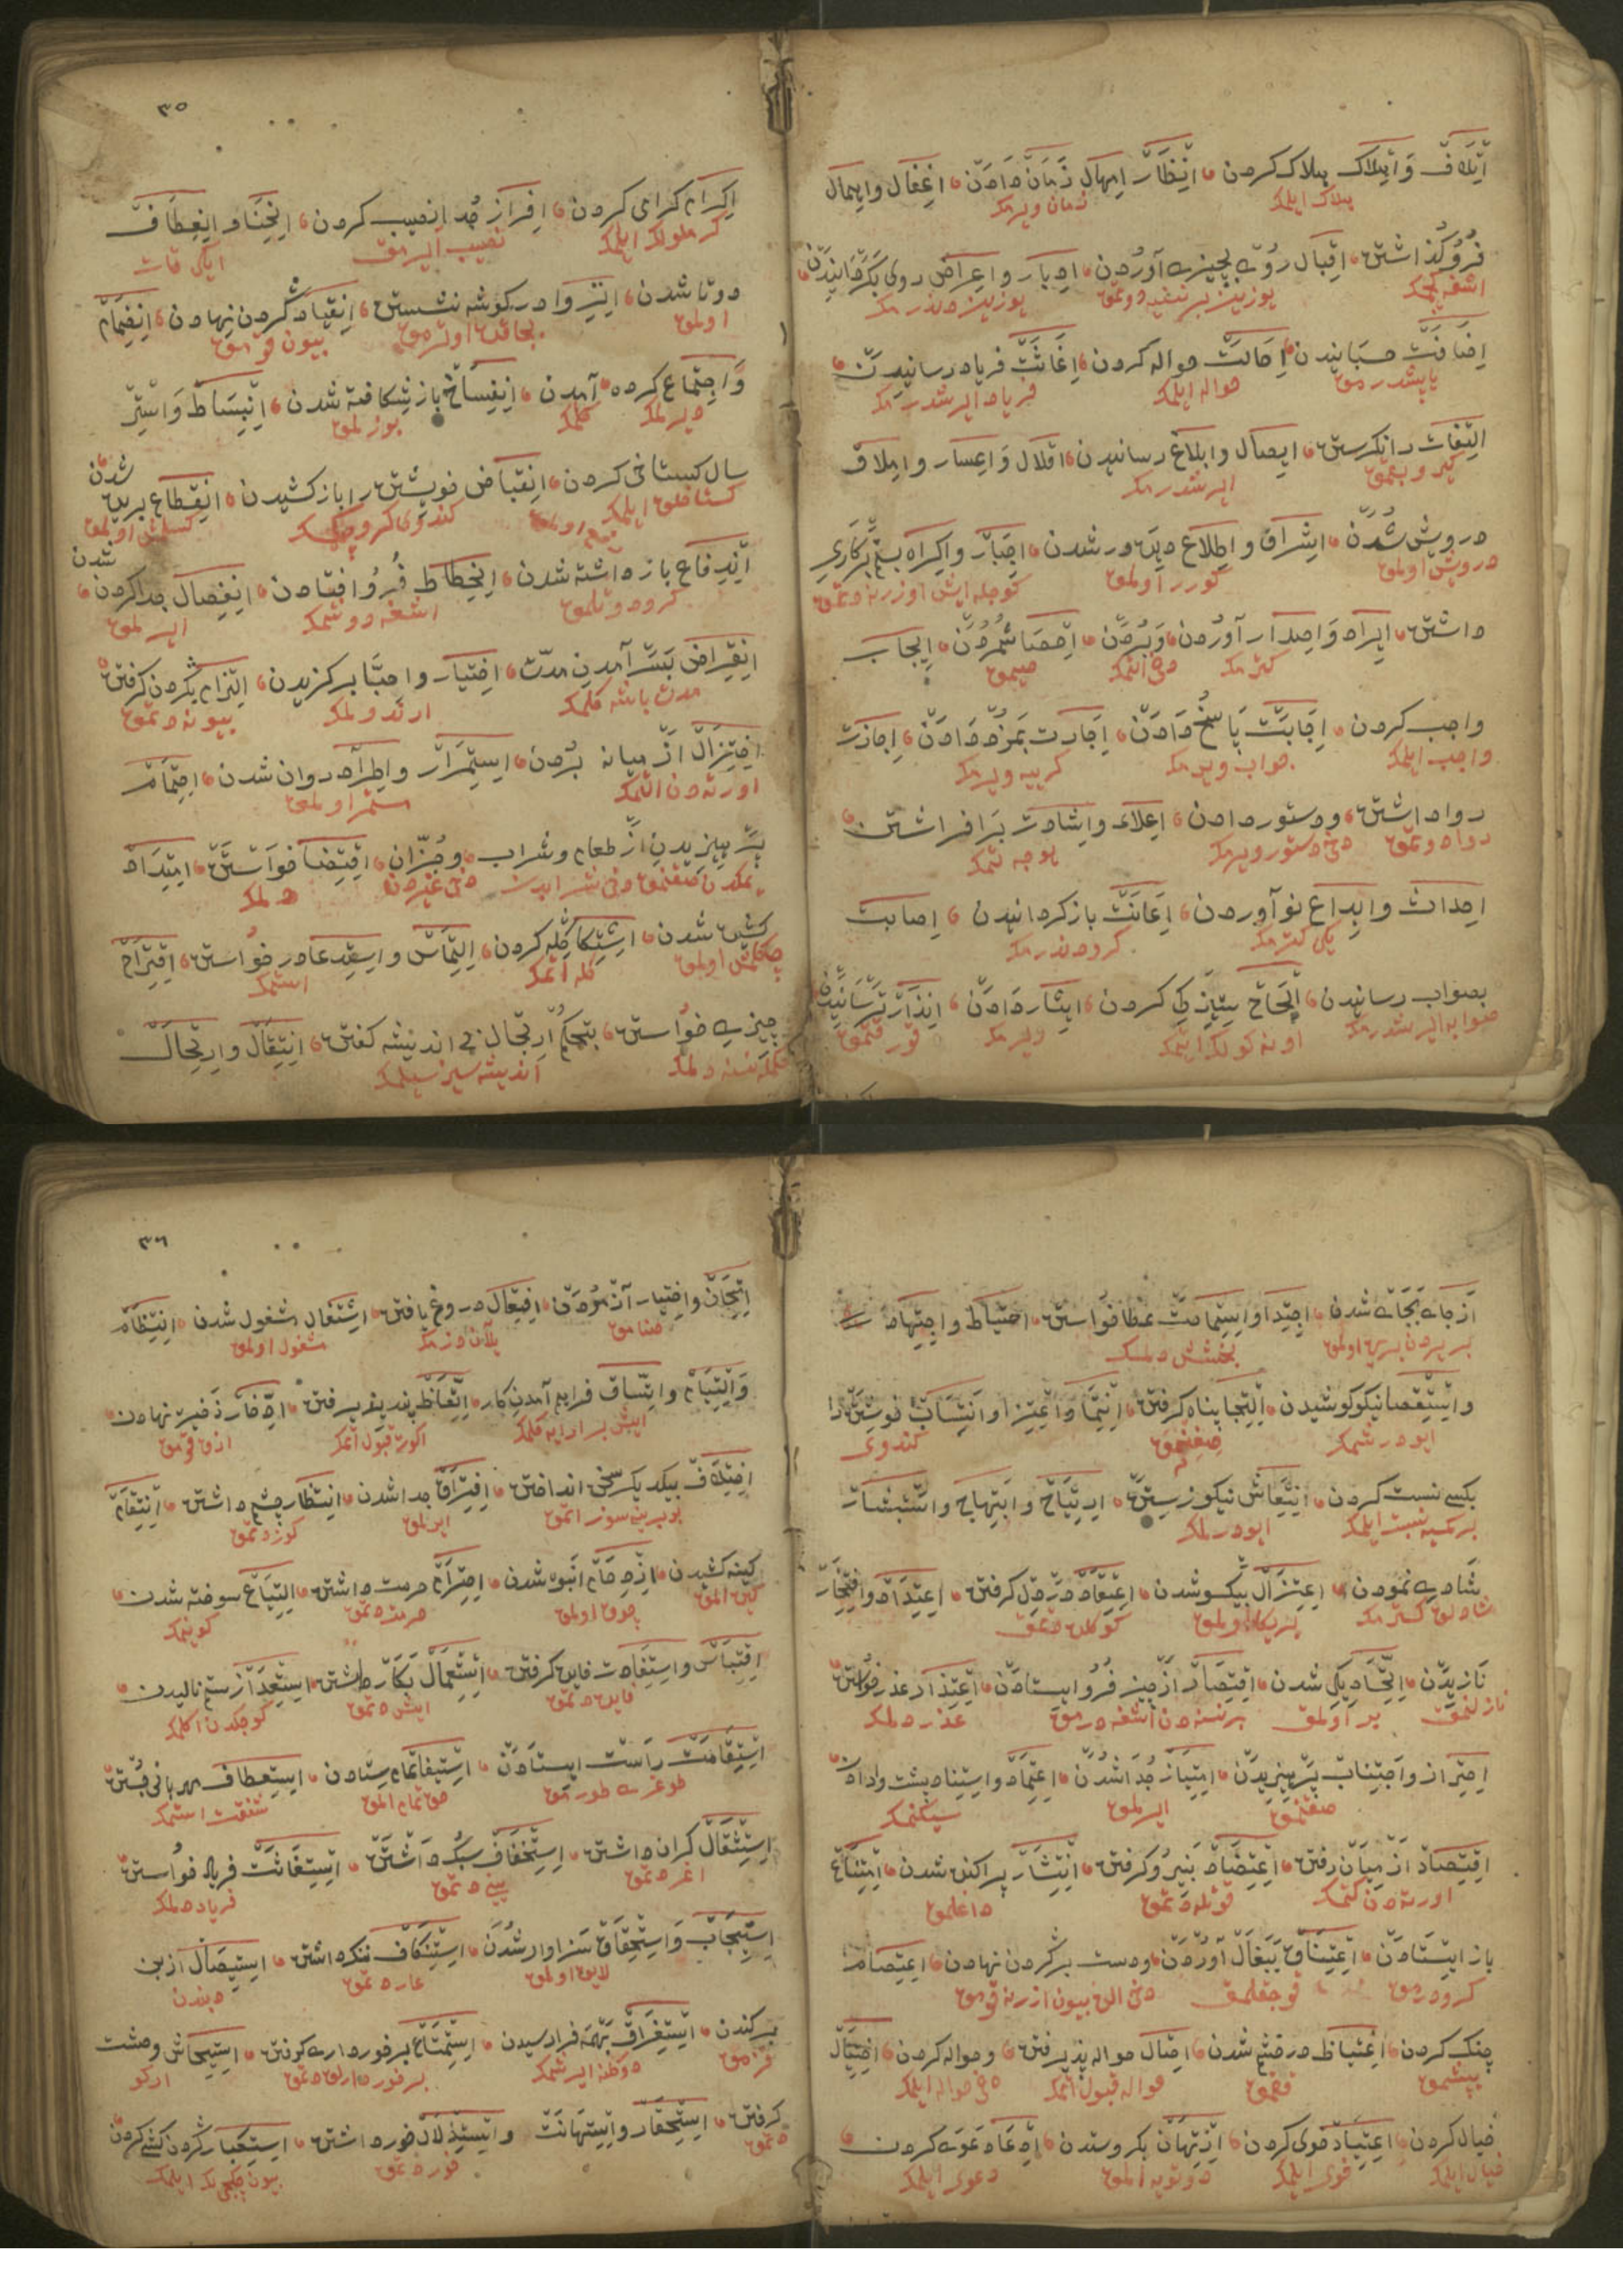 اتلاف و اهلاک هلاک کردن انتظار امهال زمان دادن اغفال و اهمال
هلاک ایلمک زمان ویرمک
فرو گذاشتن اقبال روی بچیزی آوردن ادبار و اعراض روی بگردانیدن
اضافت حسبانیدن احالت حواله کردن اغاثت فریاد رسانیدن
یاپشدرمق حواله ایلمک فریاد ایرشدرمک
التفات وانگرستن ایصال و ابلاغ رسانیدن اقلال و اعسار و املاق
ایرشدرمک
درویش شدن اشراف و اطلاع دیده ور شدن اجبار و اکراه بستم برکاری
درویش اولمق کورر اولمق
داشتن ایراد و اصدار آوردن و بردن احصا شمردن ایجاب
کترمک دخی التمک صیمق
واجب کردن اجابت پاسخ دادن اجارت بمزد دادن اجازت
واجب ایلمک جواب ویرمک کرییه ویرمک
روا داشتن و دستور دادن اعلاء و اشادت برافراشتن
روا دوتمق دخی دستور ویرمک یوجه تمک
احداث و ابداع نو آوردن اعانت باز گردانیدن اصابت
یکی کترمک کرو دندرمک
بصواب رسانیدن انجاح نیازکی کردن ایثار دادن انذار ترسانیدن
صوابه ایرشدرمک ویرمک قورقتمق
٣٥
اکرام کرامی کردن افراز جدا نصیب کردن انحنا و انعطاف
نصیب ایرمق ایکی قات
دوتا شدن انزوا در گوشه نشستن انقیاد گردن نهادن انضمام
اولمق بجاقده اوترمق بیون قومق
و اجتماع گرد آمدن انفساخ باز شکافته شدن انبساط و استر
دیرلمک کلمک بوزلمق
سال کستاخی کردن انقباض خویشتن را باز کشیدن انقطاع بریده شدن
کستاخلق ایلمک کسلمش اولمق
اندفاع باز داشته شدن انحطاط فرو افتادن انفصال جدا کردن شدن
کرو دوتلمق اشغه دوشمک ایرلمق
انقراض بسر آمدن مدت اختیار و اجتبا برگزیدن التزام بگردن گرفتن
مدت باشه کلمک ارتدولمک بیونه دتمق
اختزال از میانه بردن استمرار و اطراد روان شدن احتمام
اورته دن التمک مستمر اولمق
پرهیزیدن از طعام و شراب و جز آن اقتضا خواستن امتداد
یمکدن صقنمق دخی شرابدن دخی غیردن دلمک
کشیده شدن اشتکا گله کردن التماس و استدعا درخواستن اقتراح
چکلمش اولمق کله اتمک استمک
چیزی خواستن بتحکم ارتجال بی اندیشه گفتن انتقال و ارتحال
اندیشه سیز سیلمک
از جای بجای شدن اجتدا و استماحت عطا خواستن احتیاط و اجتهاد
بر یردن بریره اولمق بخشش دلمک
و استقصا نیکو کوشیدن التجا پناه گرفتن انتما و اعتزا و انتساب خویشتن را
ایو درشمک صغنمق کندوی
بکسی نسبت کردن انتعاش نیکو زیستن ارتیاح و ابتهاج و استبشار
بر کمسیه نسبت ایلمک ایو درلمک
شادی نمودن اعتزال بیکسو شدن اعتقاد در دل گرفتن اعتداد و افتخار
شادلق کسترمک بر یکا اولمق کوکلده دتمق
نازیدن اتحاد یکی شدن اقتصار از چیزی فرو ایستادن اعتذار عذر خواستن
نازلنمق بر اولمق بر نسنه دن اشغه درمق عذر دلمک
احتراز و اجتناب پرهیزیدن امتیاز جدا شدن اعتماد و استناد پشت وا دادن
صقنمق ایرلمق سیکنمک
اقتصاد از میان رفتن اعتضاد نیرو گرفتن انتشار پراکنده شدن امتناع
اورته دن کتمک قوتله دتمق داغلمق
باز ایستادن اعتناق ببغل آوردن و دست بر گردن نهادن اعتصام
کرو درمق قوجقلمق دخی الن بیون ازرینه قومق
چنگ کردن اغتیاظ در خشم شدن احتیال حواله پذیرفتن و حواله کردن اختیال
یپشمق قخمق حواله قبول اتمک دخی حواله ایلمک
خیال کردن اعتیاد خوی کردن ارتهان بگرو ستدن ادعا دعوی کردن
خیال ایلمک خوی ایلمک دوتویه المق دعوی ایلمک
٣٦
امتحان و اختبار آزمودن افتعال دروغ بافتن اشتغال مشغول شدن انتظام
صنامق یلان دزمک مشغول اولمق
و التیام و اتساق فراهم آمدن کار اتعاظ پند پذیرفتن ادخار ذخیره نهادن
ایش برارایه کلمک اکوت قبول اتمک ازق قومق
اختلاف بیکدیگر سخن انداختن افتراق جدا شدن انتظار چشم داشتن انتقام
بربرینه سوز اتمق ایرلمق کوز دتمق
کینه کشیدن ازدحام انبوه شدن احترام حرمت داشتن التیاع سوخته شدن
کین المق چوق اولمق حرمت دتمق کوینمک
اقتباس و استفادت فایده گرفتن استعمال بکار داشتن استعدا از ستم نالیدن
فایده دتمق ایش دتمق کوجدن اکلمک
استقامت راست ایستادن استیفا تمام ستادن استعطاف مهربانی جستن
طوغری طورمق حق تمام المق شفقت استمک
استثقال گران داشتن استخفاف سبک داشتن استغاثت فریاد خواستن
اغر دتمق ینی دتمق فریاد دلمک
استیجاب و استحقاق سزاوار شدن استنکاف ننگ داشتن استیصال از بن
لایق اولمق عار دتمق دیبندن
برکندن استغراق بهمه فرا رسیدن استمتاع برخورداری گرفتن استیحاش وحشت
قزمق دوکلنه ایرشمک برخوردارلق دتمق ارکو
گرفتن استحقار و استهانت و استذلال خورد داشتن استکبار گردن کشی کردن
دتمق خور دتمق